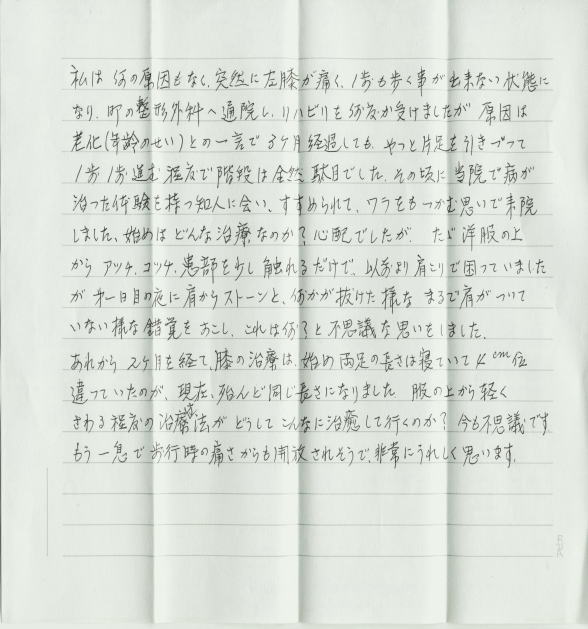 私は何の原因もなく、突然に左膝が痛く、1歩も歩く事が出来ない状態に
なり、町の整形外科へ通院し、リハビリを何度か受けましたが 原因は
老化(年齢のせい)との一言で 3ヶ月経過しても、やっと片足を引きづって
1歩1歩進む程度で階段は全然駄目でした。その頃に当院で病が
治った体験を持つ知人に会い、すすめられて、ワラをもつかむ思いで来院
しました。始めはどんな治療なのか?心配でしたが、ただ洋服の上
から アッチ、コッチ、患部を少し触れるだけで、以前より肩こりで困っていました
が 才一日目の夜に肩からストーンと、何かが抜けた様な まるで肩がついて
いない様な錯覚をおこし、これは何?と不思議な思いをしました。
あれから 2ヶ月を経て、膝の治療は、始め両足の長さは寝ていて4cm位
違っていたのが、現在、殆んど同じ長さになりました。服の上から軽く
さわる程度の治療法が どうしてこんなに治癒して行くのか?今も不思議です
もう一息で歩行時の痛さからも開放されそうで、非常にうれしく思います。